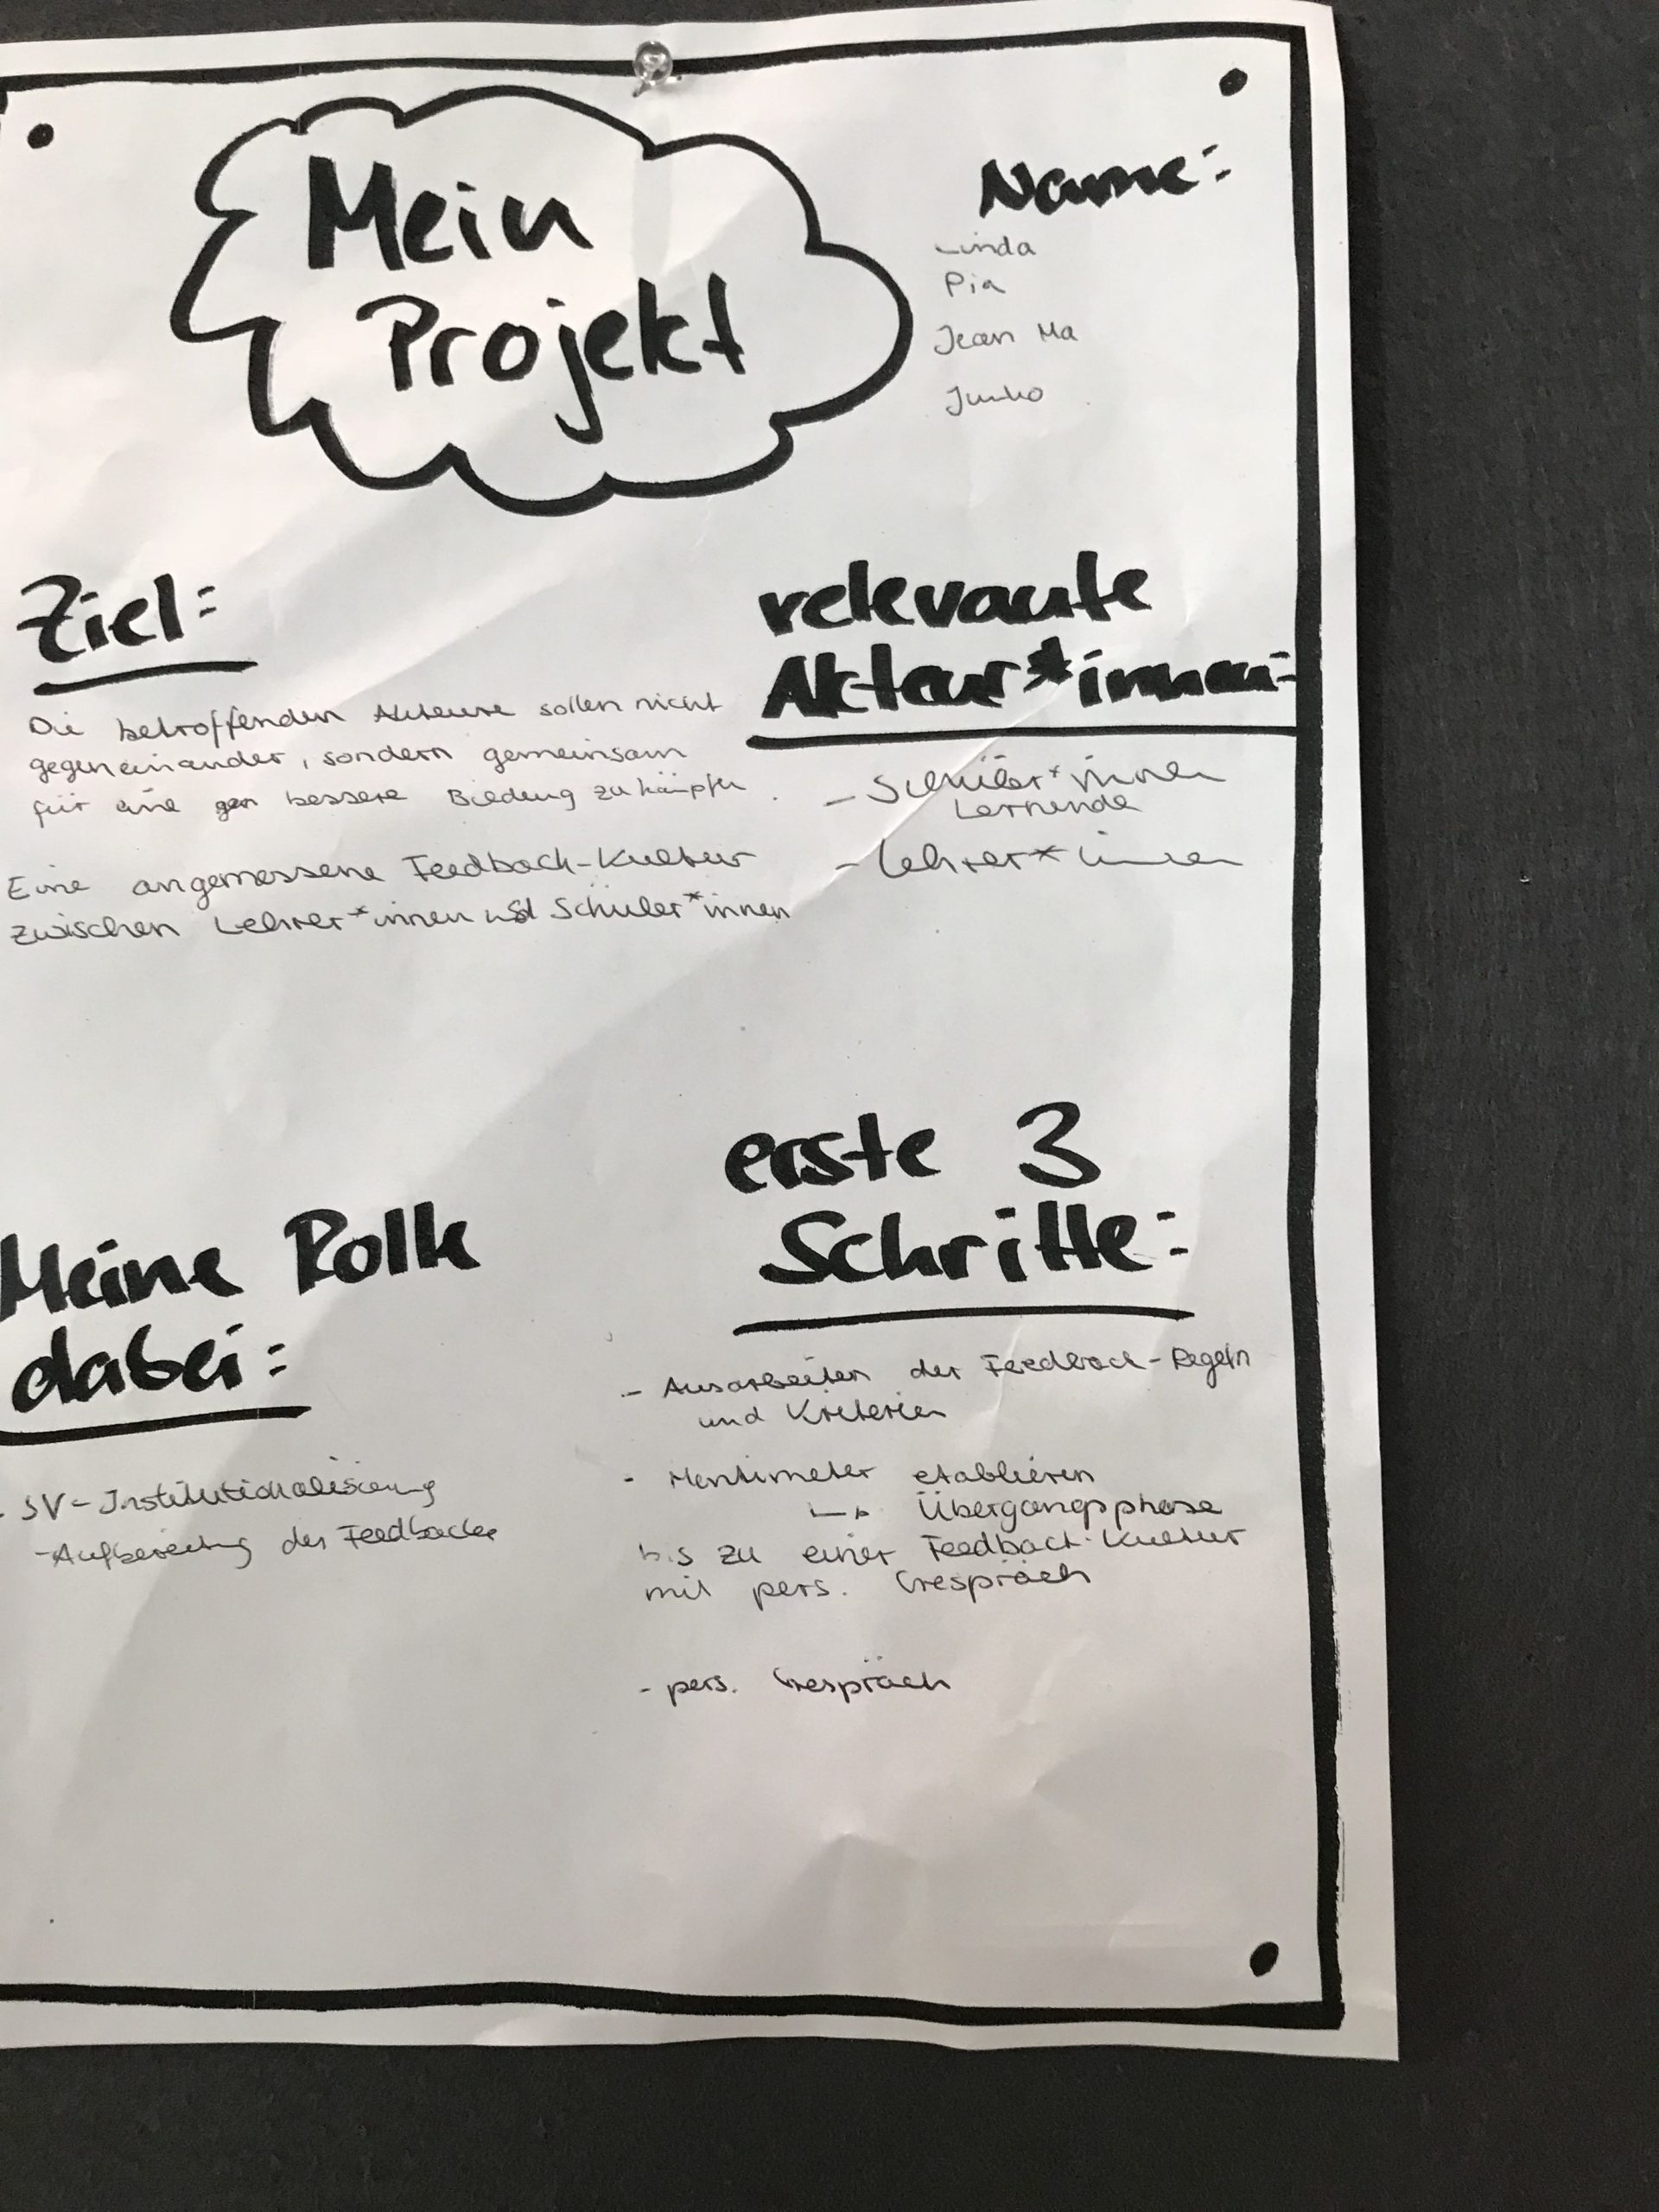 Mein
Projekt
Name:
Linda
Pia
Jean Ma
Ziel:
Die betroffenden Akteure sollen nicht
gegeneinander, sondern gemeinsam
für eine bessere Bildung zu kämpfen.
Eine angemessene Feedback-Kultur
zwischen Lehrer*innen und Schüler*innen
relevante
Akteur*innen:
- Schüler*innen
Lernende
- Lehrer*innen
Meine Rolle
dabei:
- SV-Institutionalisierung
- Aufbereitung des Feedbacks
erste 3
Schritte:
- Ausarbeiten der Feedback-Regeln
und Kriterien
- Mentimeter etablieren
↳ Übergangsphase
bis zu einer Feedback-Kultur
mit pers. Gespräch
- pers. Gespräch